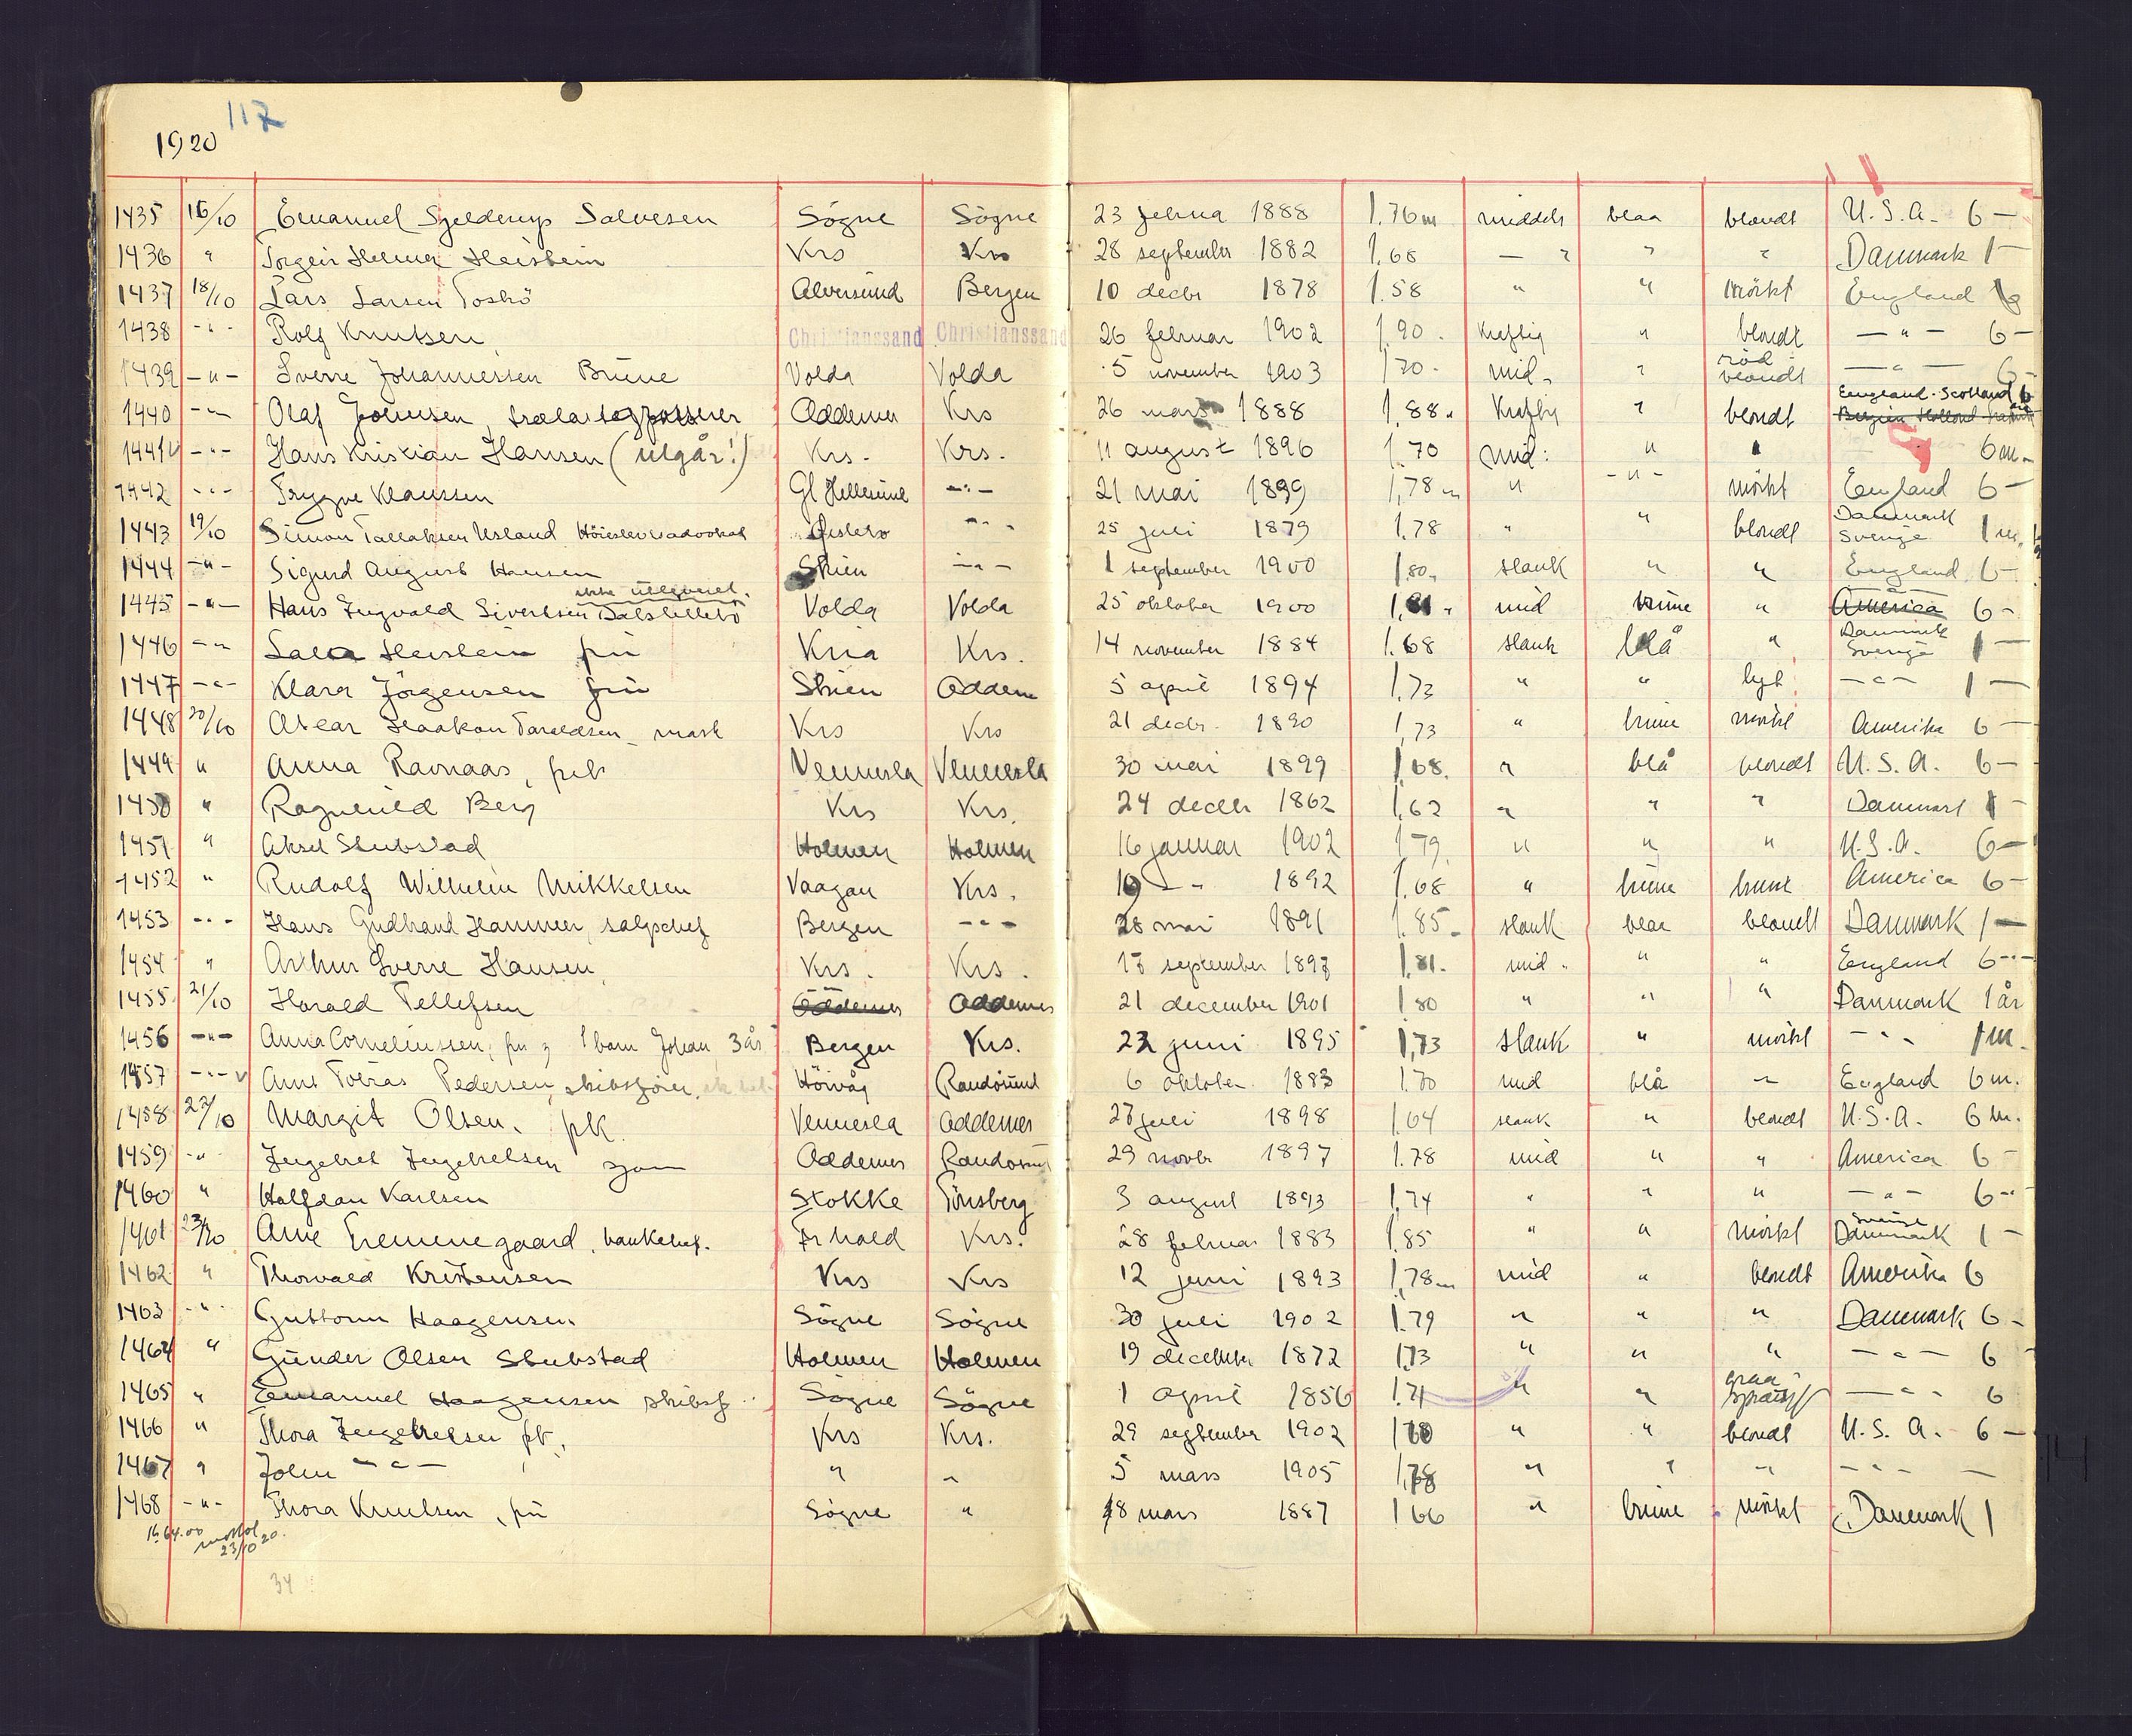 117
1920
1435 16/10 Emanuel Sjelderup Salvesen Søgne Søgne 23 februa 1888 1.76 m middels blaa blondt U.S.A. 6 —
1436 " Torgeir Helmer Heistein Krs Krs 28 september 1882 1.68 — " " " Danmark 1 —
1437 18/10 Lars Larsen Alversund Bergen 10 decbr 1878 1.58 " " mörkt England
1438 - " - Rolf Knutsen Christianssand Christianssand 26 februar 1902 1.90 kraftig " blondt — " — 6 —
1439 — " — Sverre Johannessen Brune Volda Volda 5 november 1903 1 70 mid. " röd blondt — " — 6 —
1440 — " — Olaf Johnsen, Oddernes Krs 26 mars 1888 1.88 kraftig " blondt England · Scotland 6
1441 — " — Hans Kristian Hansen (utgår!) Krs. Krs. 11 august 1896 1.70 mid: " " 6 m.
1442 - " - Trygve Klaussen Gl Hellesund — " — 21 mai 1899 1,78 m " - " - mörkt England 6 —
1443 19/10 Simon Tallaksen Usland Höiesteretsadvokat Öislebø " 25 juli 1879 1.78 " " blondt Danmark Sverige 1 m.
1444 — " — Sigurd August Hansen Skien — " — 1 september 1900 1 80 slank " " England 6 —
1445 — " — Hans Ingvald Sivertsen Dalslillebö ikke utleveret. Volda Volda 25 oktober 1900 1,81 mid brune " America 6 -
1446 — " — Heistein fru Kria Krs. 14 november 1884 1.68 slank blå " Danmark Sverige 1 —
1447 — " — Klara Jörgensen fru Skien Oddern 5 april 1894 1.73 " " lyst — " — 1 —
1448 20/10 Haakon Taraldsen, mask Krs Krs 21 decbr. 1890 1,73 " brune mörkt Amerika 6 —
1449 " Anna Ravnaas, frk Vennesla Vennesla 30 mai 1899 1,68. " blå blondt U.S.A. 6 —
1450 " Ragnhild Berg Krs Krs. 24 decbr 1862 1,62 " " " Danmark 1 —
1451 " Aksel Stubstad Holmen Holmen 16 januar 1902 1 79 " " " U.S.A. 6 —
1452 " Rudolf Wilhelm Mikkelsen Vaagan Krs. 19 — " 1892 1.68 " brune brunt America 6 —
1453 - " - Hans Gudbrand Hammer, salgschef Bergen - " - 28 mai 1891 1.85 slank blaa blondt Danmark 1 —
1454 " Arthur Sverre Hansen Krs. Krs. 17 september 1897 1.81. mid. " " England 6 —
1455 21/10 Harald Tellefsen Oddernes Oddernes 21 december 1901 1 80 " " " Danmark 1 år
1456 — " — Anna Corneliussen, fru og 1 barn Johan, 3 år Bergen Krs. 22 juni 1895 1,73 slank " mörkt — " 1 m.
1457 — " — Arne Tobias Pedersen, skibsförer Hövåg Randösund 6 oktober 1883 1.70 mid blå " England 6 m.
1458 22/10 Margit Olsen, frk Vennesla Oddernes 27 juli 1898 1.64 slank " blondt U.S.A. 6 m.
1459 " Ingebret Ingebretsen sjøm Oddernes Randösund 29 novbr 1897 1.78 mid " " America 6 —
1460 " Halfdan Karlsen Stokke Tönsberg 3 august 1893 1.74 " " " — " — 6 —
1461 23/10 Arne Tremmegaard, bankchef. Fr hald Krs. 28 februar 1883 1.85 " " mörkt Sverige Danmark 1 —
1462 " Thorvald Kristensen Krs Krs 12 juni 1893 1,78 m mid " blondt Amerika 6
1463 - " - Guttorm Haagensen Søgne Søgne 30 juli 1902 1.79 " " " Danmark 6 —
1464 " Gunder Olsen Stubstad Holmen Holmen 19 december 1872 1.73 " " " — " — 6
1465 " Emanuel Haagensen skibsf Søgne Søgne 1 april 1856 1.71 " " graa sprængt — " - 6
1466 " Thora Ingebretsen frk. Krs Krs. 29 september 1902 1 " " blondt U.S.A. 6 —
1467 " John — " — " " 5 mars 1905 1,78 " " " — " — —
1468 - " - Thora Knutsen, fru Søgne " 18 mars 1887 1 66 " brune mörkt Danmark 1
64.00
23/10 20.
34
14